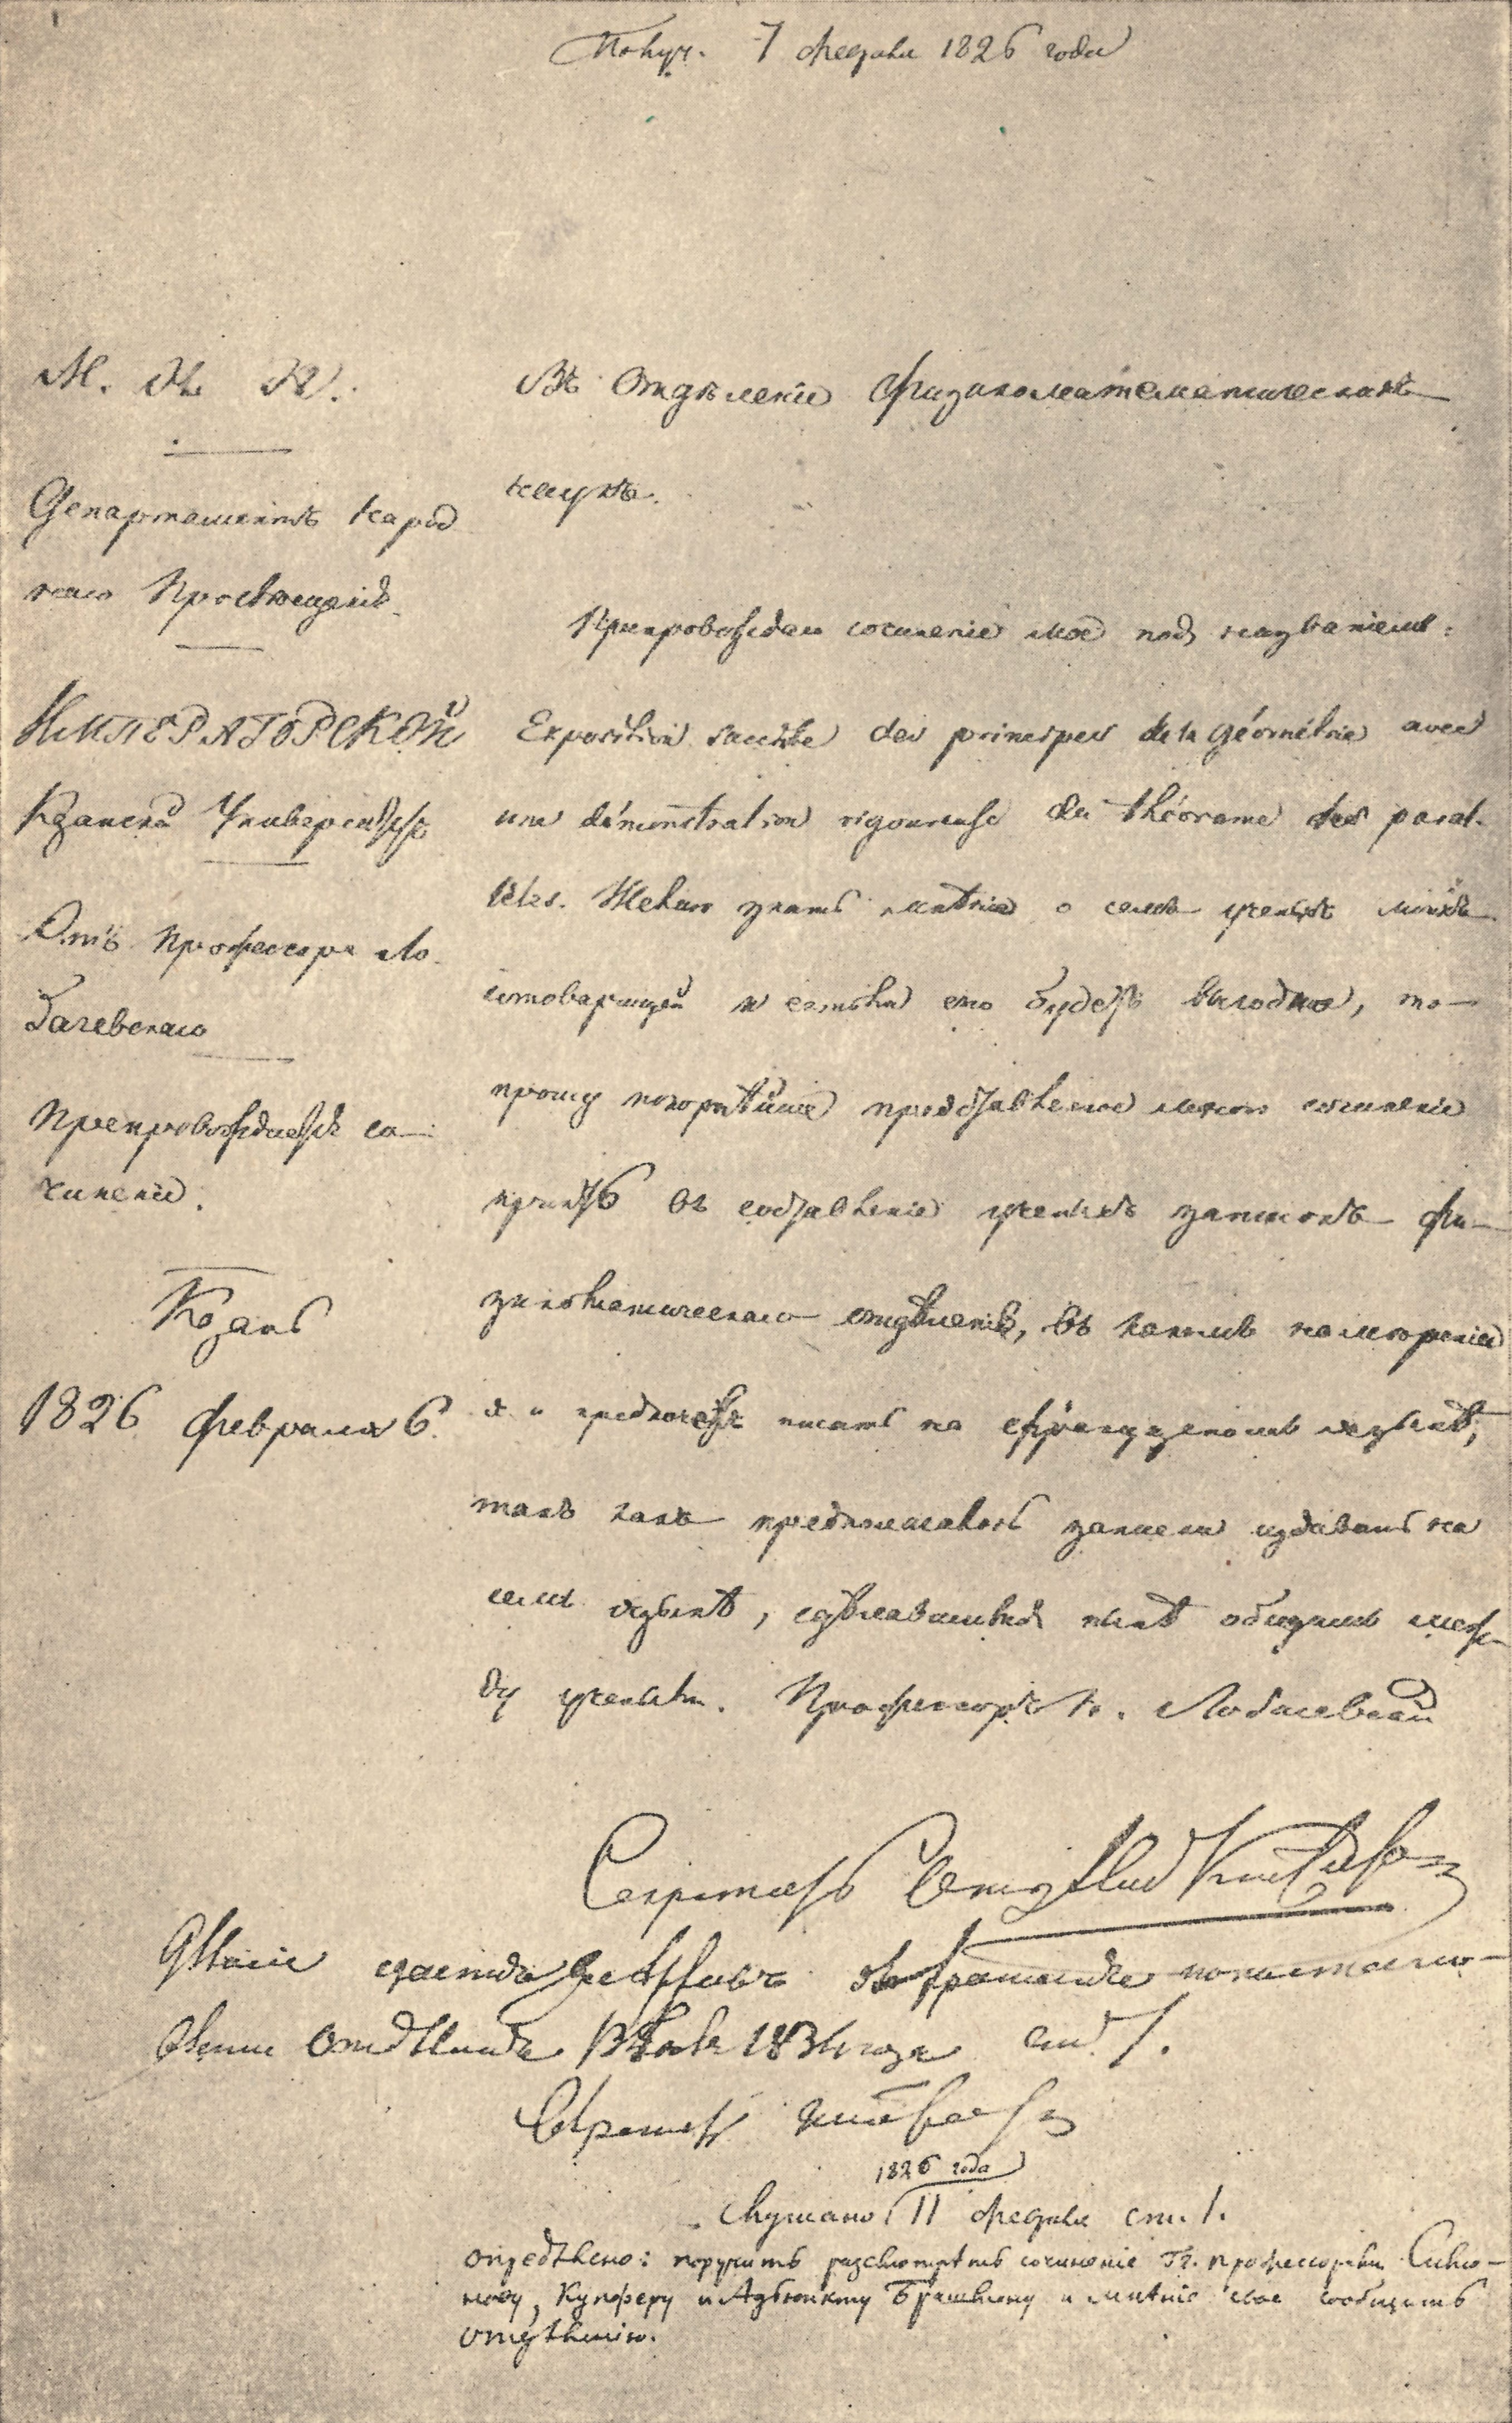 Получ. 7 февраля 1826 года
М. Д. Н.
Департаментъ Народ
наго Просвѣщенія.
ИМПЕРАТОРСКОЙ
Казанскій Университетъ
Отъ Профессора Ло-
бачевскаго
Препровождается со-
чиненіе.
Казань
1826 февраля 6.
Въ Отдѣленіе физикоматематическихъ
наукъ.
Препровождаю сочиненіе мое подъ названіемъ:
Exposition succinte des principes de la géométrie avec
une démonstration rigoureuse du théorème des paral-
lèles. Желаю знать мнѣніе о семъ ученыхъ моихъ
сотоварищей и естьли оно будетъ выгодно, то
прошу покорнѣйше представленное мною сочиненіе
принять въ составленіе ученыхъ записокъ фи-
зикоматическаго отдѣленія, въ какомъ намѣреніи
я и предпочелъ писать на французскомъ языкѣ,
такъ какъ предполагалось записки издавать на
семъ языкѣ, сдѣлавшемся нынѣ общимъ меж-
ду учеными. Профессоръ Н. Лобачевскій
Секретарь Отдѣленія
отдѣленія 1834 года ст. 1.
Секретарь
1826 года
Слушано 11 февраля ст. 1.
опредѣлено: поручить разсмотрѣть сочиненіе Гг. профессорамъ Симо-
нову, Купферу и Адъюнкту Брашману и мнѣніе свое сообщить
отдѣленію.